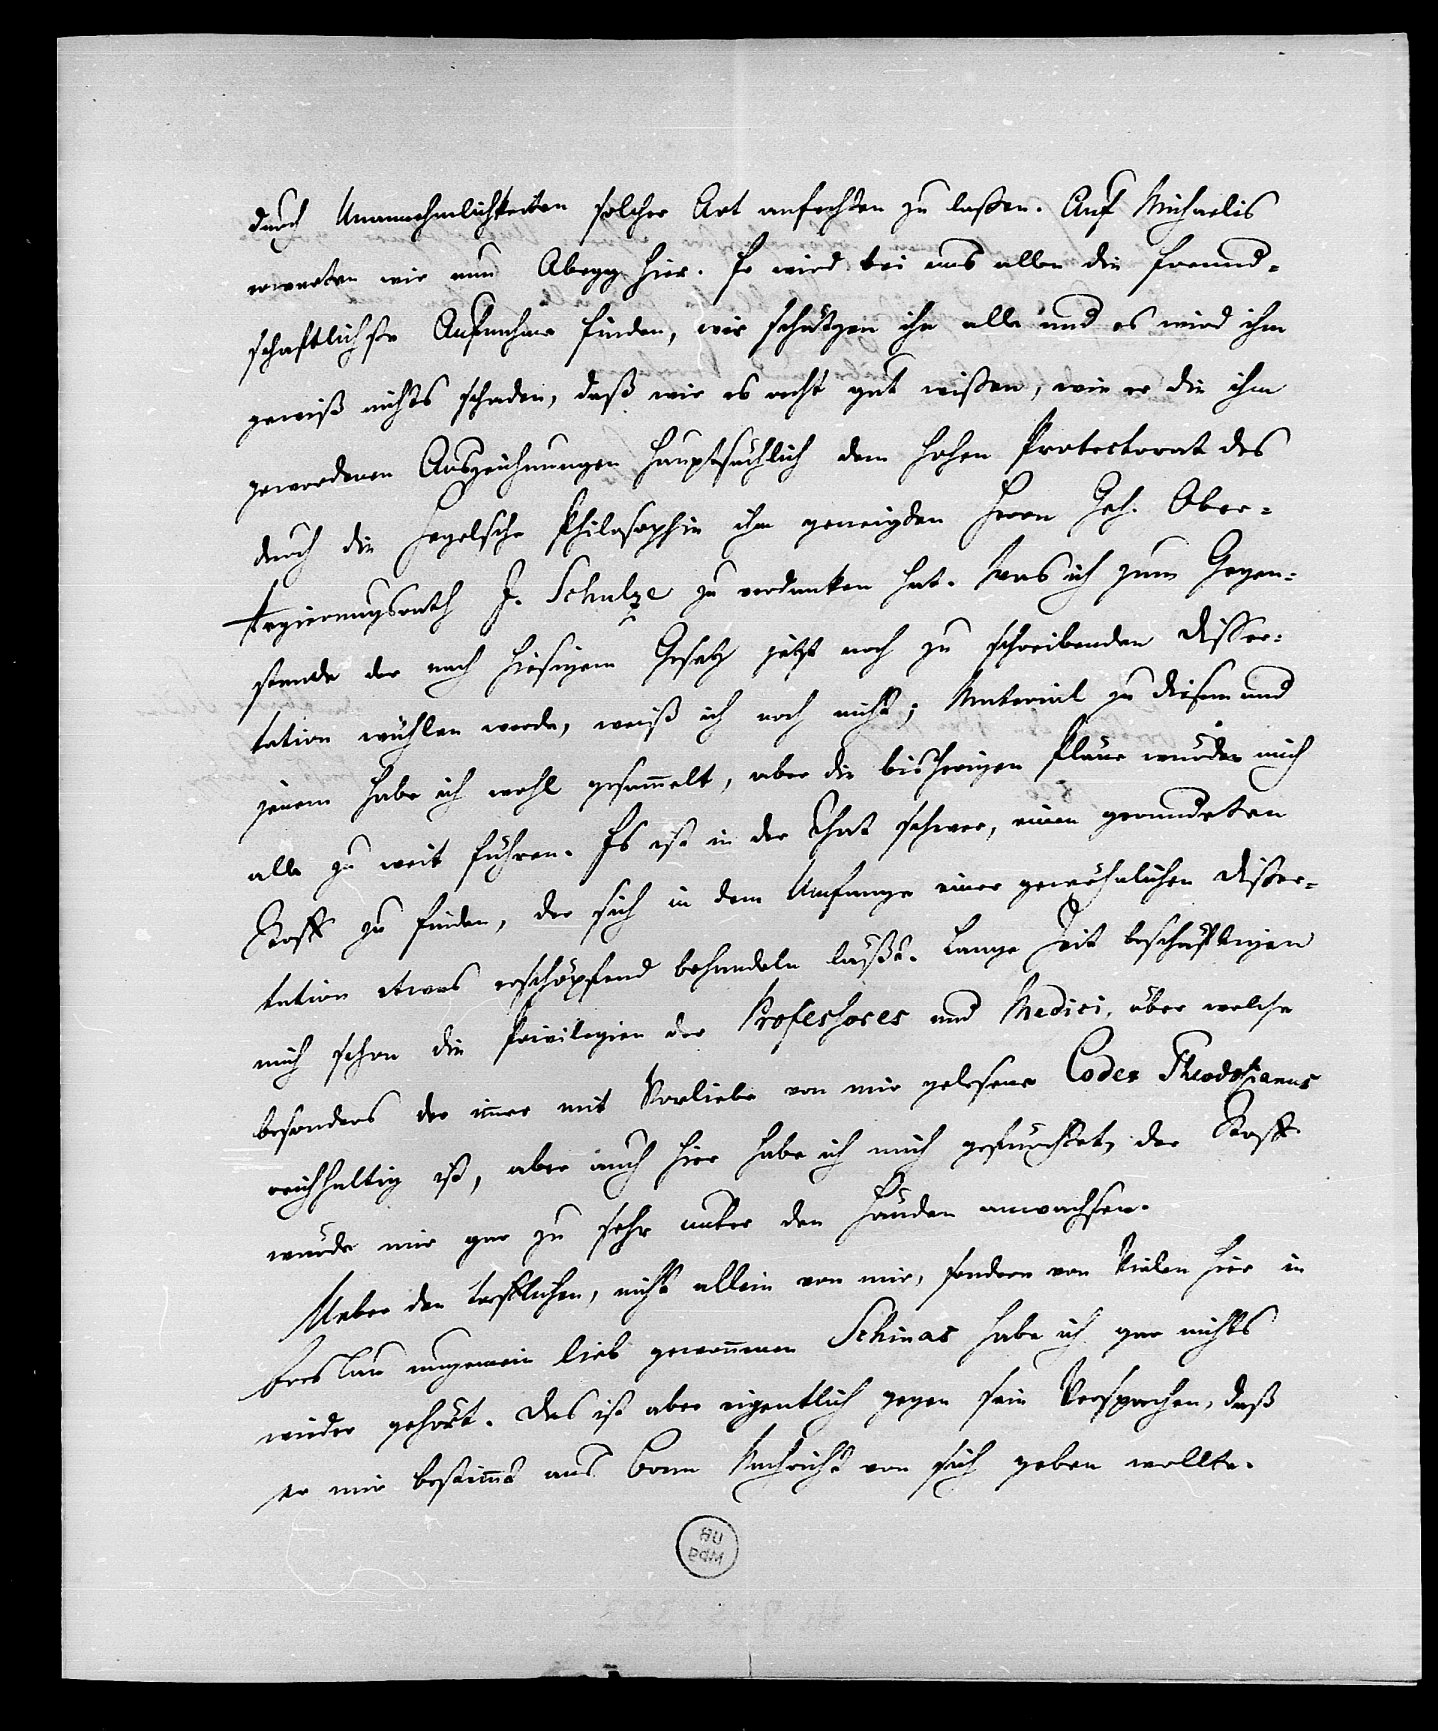 durch Unannehmlichkeiten solcher Art anfechten zu lassen. Auf Michaelis
erwarten wir nun Abegg hier. Er wird bei uns allen die freund-
schaftlichste Aufnahme finden, wir schätzen ihn alle und es wird ihm
gewiß nichts schaden, daß wir es recht gut wissen, wie er die ihm
gewordenen Auszeichnungen hauptsächlich dem hohen Protectorat des
durch die Hegelsche Philosophie ihm geneigten Herrn Geh. Ober-
Regierungsrath J. Schulze zu verdanken hat. Was ich zum Gegen-
stande der nach hiesigem Gesetz jetzt noch zu schreibenden Disser-
tation wählen werde, weiß ich noch nicht; Material zu diesem und
jenem habe ich wohl gesam̄elt, aber die bisherigen Pläne würden mich
alle zu weit führen. Es ist in der That schwer, einen gerundeten
Stoff zu finden, der sich in dem Umfange einer gewöhnlichen Disser-
tation etwas erschöpfend behandeln läßt. Lange Zeit beschäftigen
mich schon die Privilegien der Professores und Medici, über welche
besonders der im̄er mit Vorliebe von mir gelesene Codex Theodosianus
reichhaltig ist, aber auch hier habe ich mich gefürchtet, der Stoff
würde mir gar zu sehr unter den Händen anwachsen.
Ueber den trefflichen, nicht allein von mir, sondern von Vielen hier in
Breslau ungemein lieb gewon̄enen Schinas habe ich gar nichts
wieder gehört. Das ist aber eigentlich gegen sein Versprechen, daß
er mir bestim̄t aus Bonn Nachricht von sich geben wollte.
UB